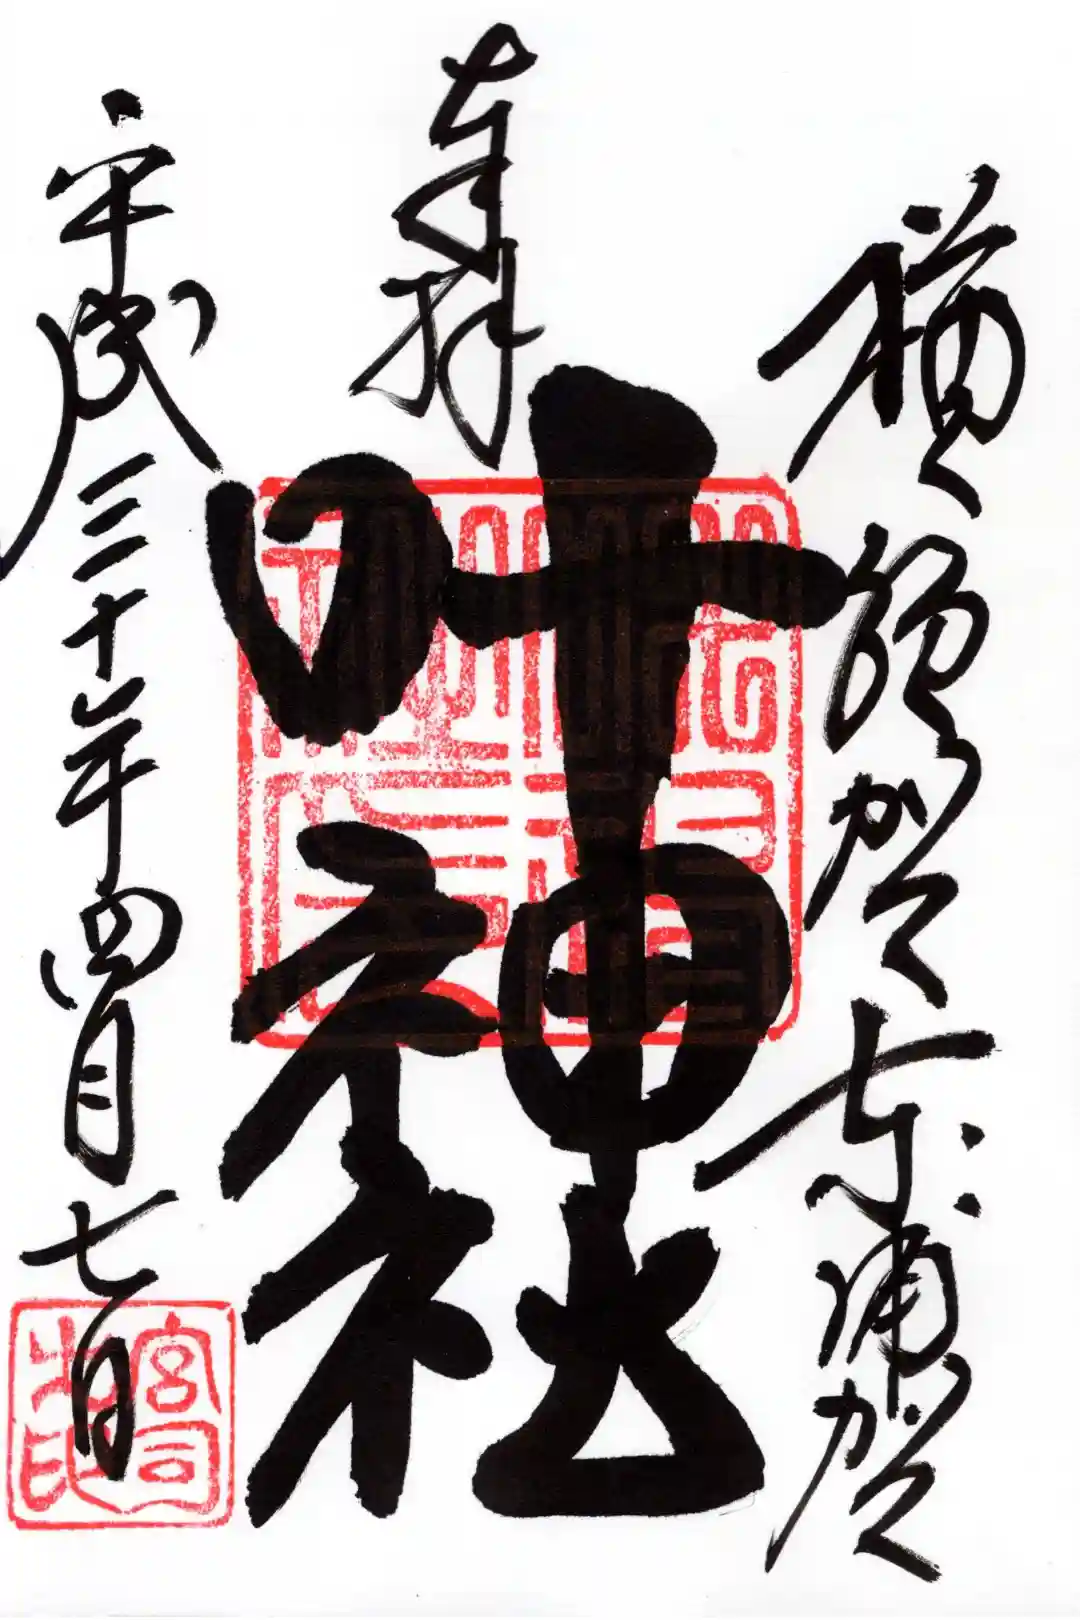 横須賀東浦賀
奉拝
叶神社
平成三十年四月七日
宮司之印